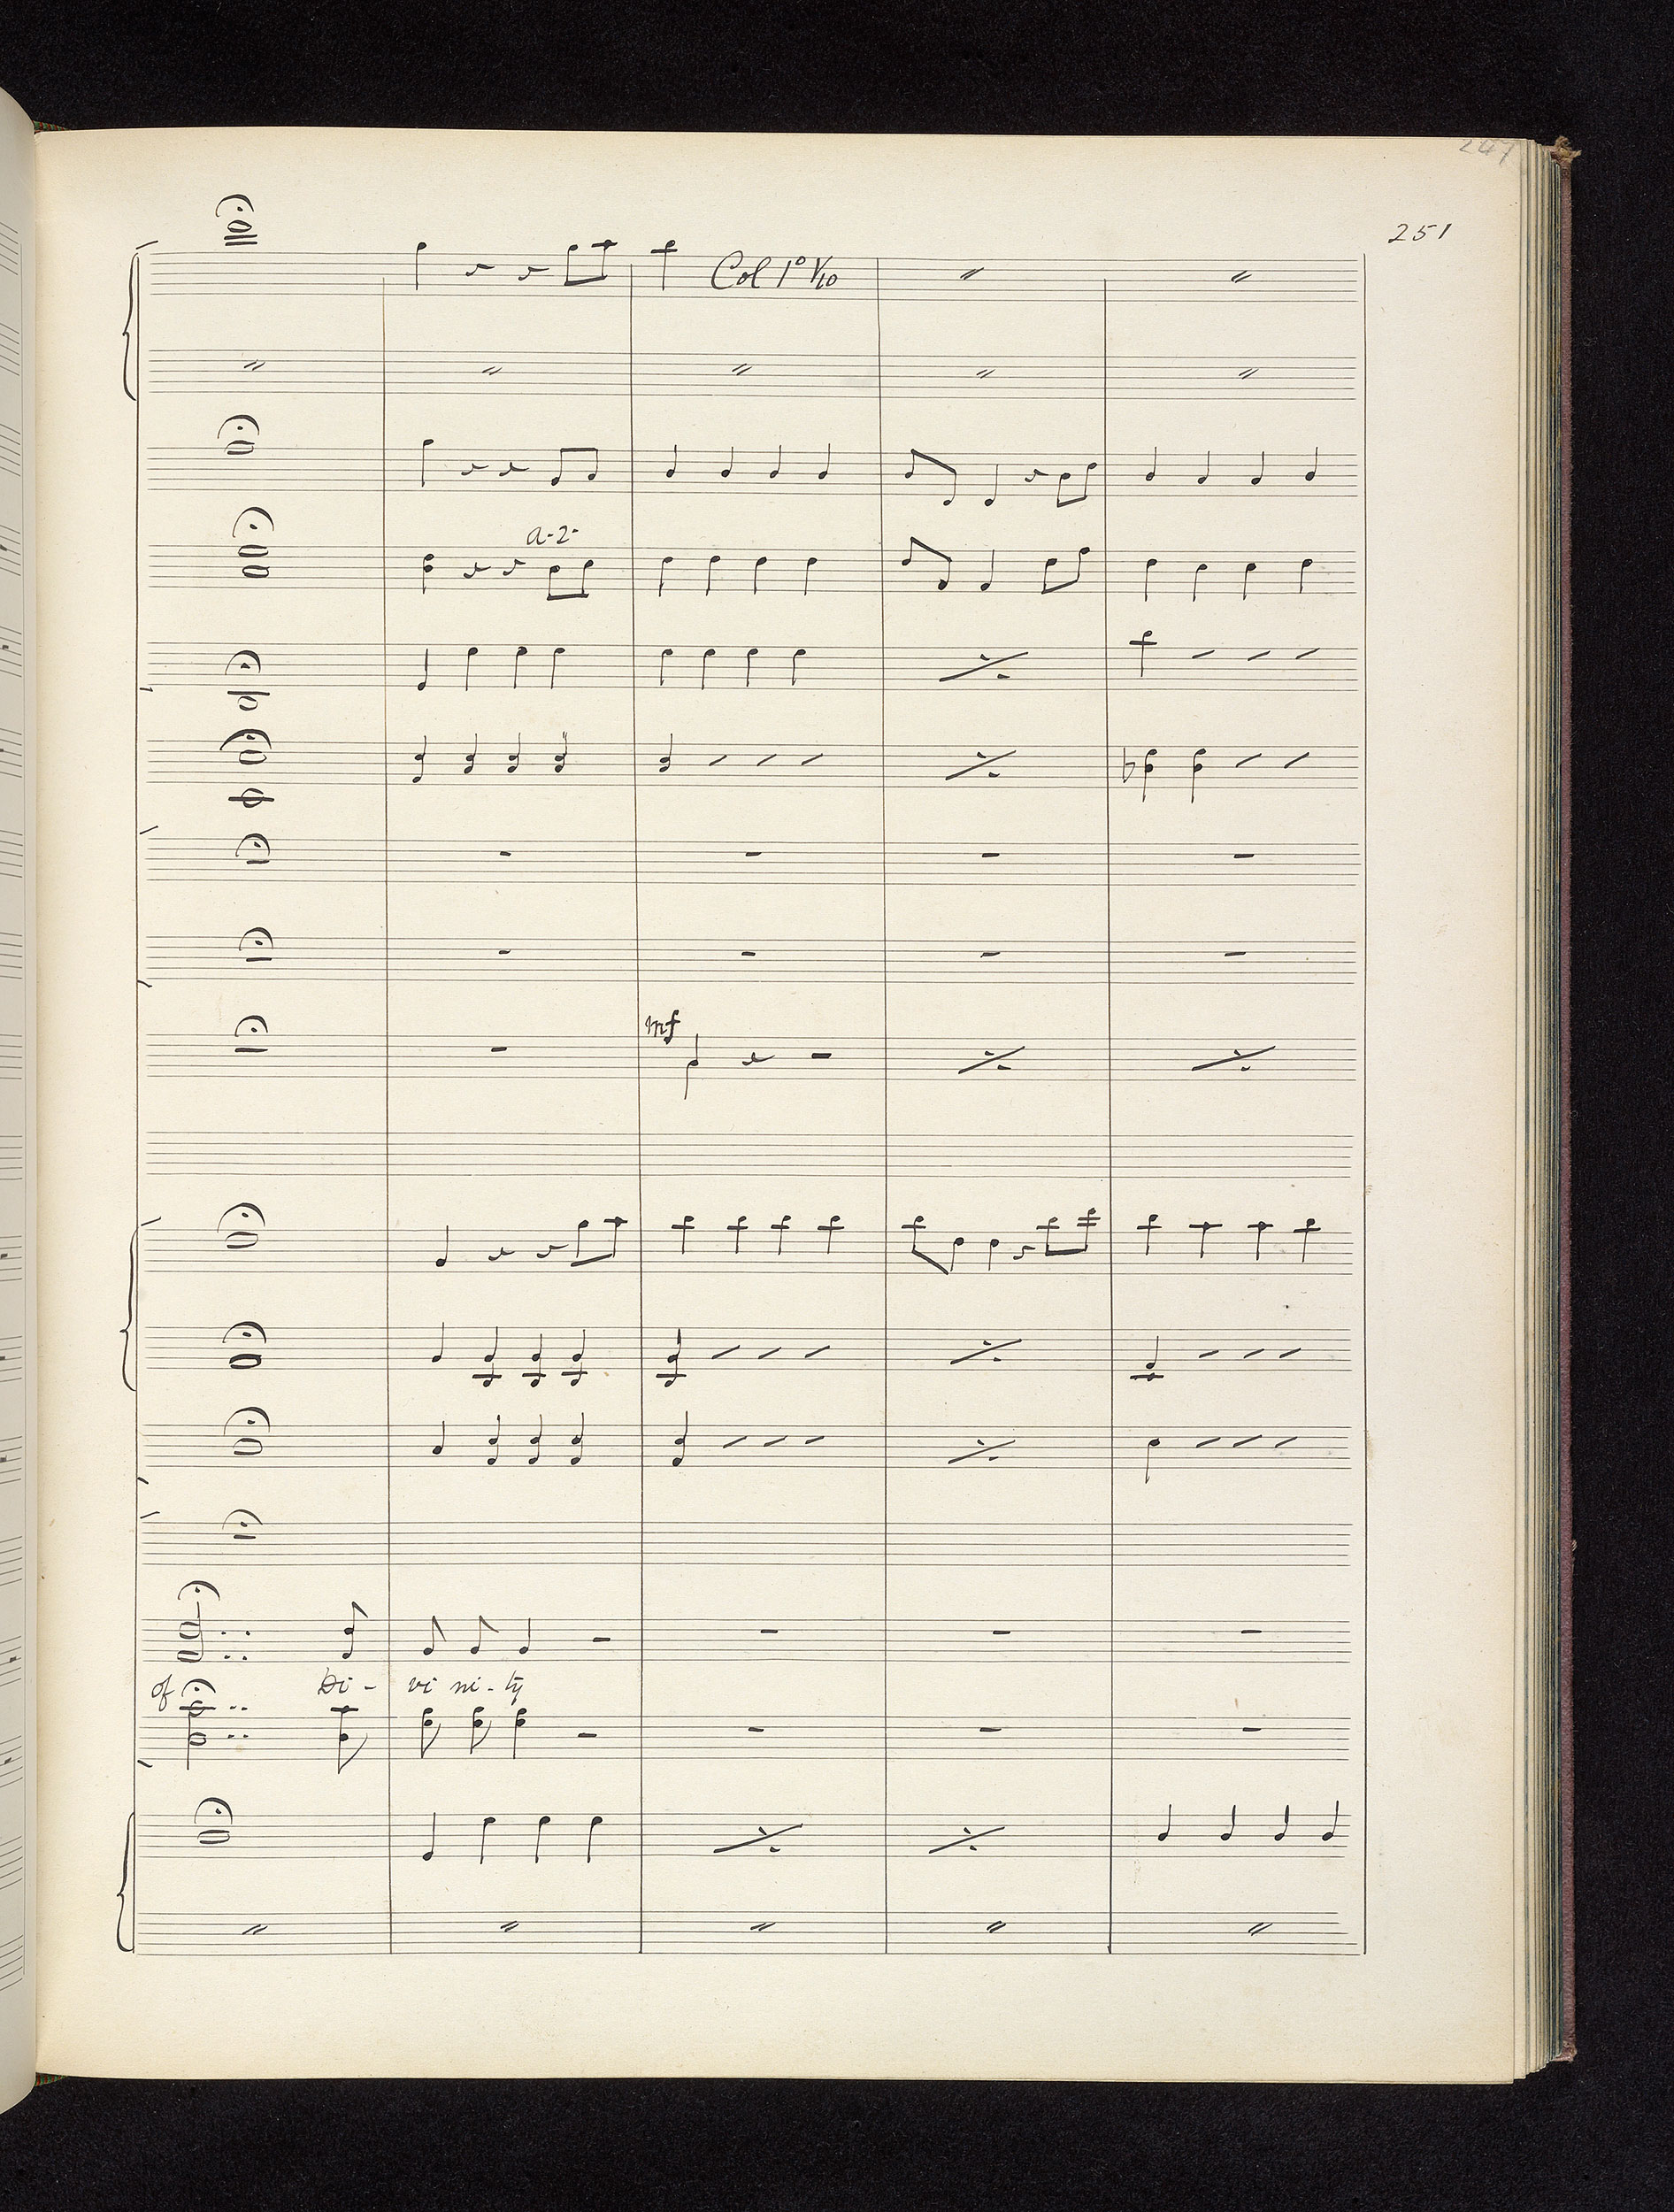 247
251
Col 1º V/no
a-2-
mf
of Di - vi ni - ty